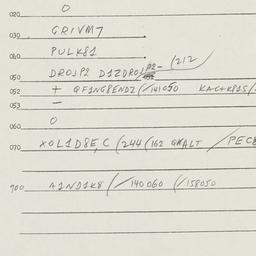 020 O
030 GRIVM7
040 PULK81
050 DROJP2 D1ZDRO (212
052 + QFING8ENDZ (/141050
053 —
060 O
070 XOL1D8E,C (244 (162 GKALT /PEC8
900 A2ND1K8 (/140060 (/158050